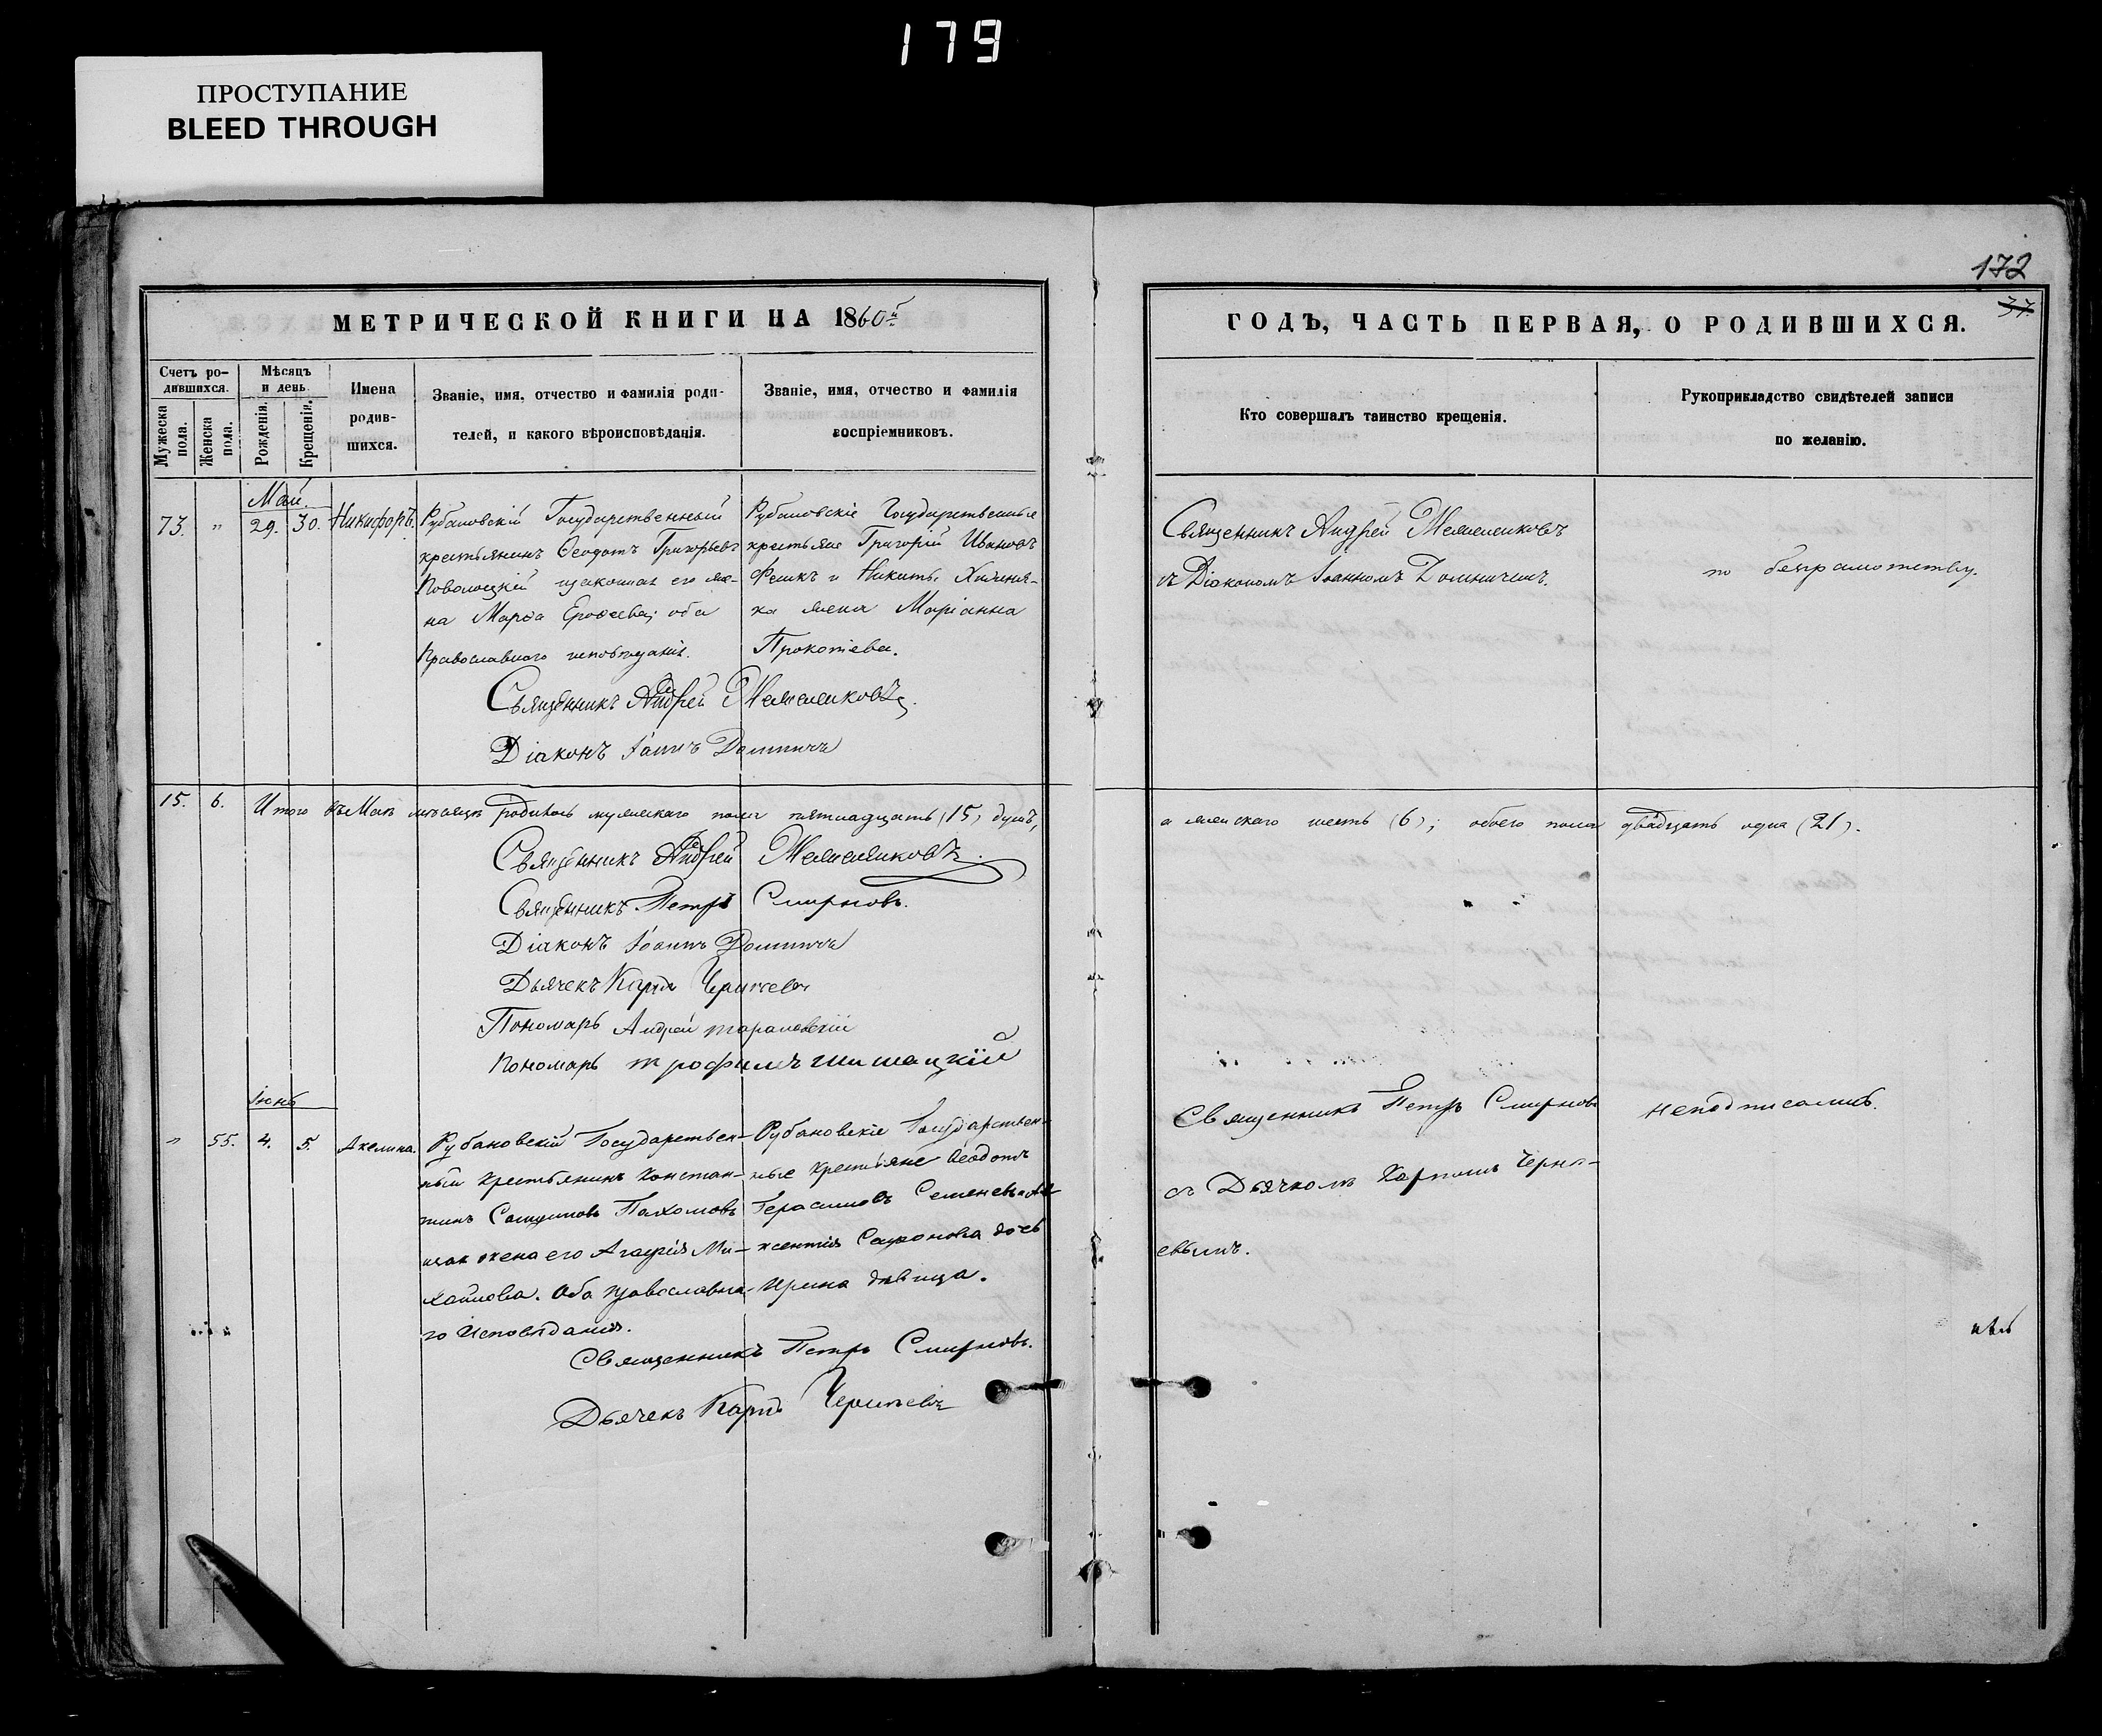 179
ПРОСТУПАНИЕ
BLEED THROUGH
172
37.
МЕТРИЧЕСКОЙ КНИГИ НА 1860й
ГОДЪ, ЧАСТЬ ПЕРВАЯ, О РОДИВШИХСЯ.
Счетъ ро-
дившихся.
Мужеска пола.
Женска пола.
Мѣсяцъ
и день
Рожденія.
Крещенія.
Имена
родив-
шихся.
Званіе, имя, отчество и фамилія роди-
телей, и какого вѣроисповѣданія.
Званіе, имя, отчество и фамилія
воспріемниковъ.
Кто совершалъ таинство крещенія.
Рукоприкладство свидѣтелей записи
по желанію.
Май.
73. " 29. 30. Никифоръ.
Рубановскій Государственный
крестьянинъ Ѳеодотъ Григорьевъ
законная его же-
на Марѳа Ероѳеева; оба
Православнаго исповѣданія.
Рубановскіе Государственные
крестьяне Григорій Ивановъ
и Никиты
ка жена Маріанна
Прокопіева.
Священникъ Андрей
Діаконъ Іоаннъ
Священникъ Андрей
съ Діакономъ Іоанномъ
по безграмотству.
15. 6. Итого въ Маѣ мѣсяцѣ родилось мужескаго пола пятнадцать (15) душъ,
а женскаго шесть (6); обоего пола двадцать одна (21).
Священникъ Андрей
Священникъ Петръ Смирновъ.
Діаконъ Іоаннъ
Дьячекъ Карпъ
Пономарь Андрей
Пономарь трофимъ шишацкій
Іюнь
" 55. 4. 5. Акелина.
Рубановскій Государствен-
ный Крестьянинъ Констан-
тинъ Пахомовъ
жена его Агафія Ми-
хайлова. Оба православна-
го Исповѣданія.
Рубановскіе Государствен-
ные Крестьяне Ѳеодотъ
Герасимовъ
ксентія Сафонова дочь
Ирина дѣвица.
Священникъ Петръ Смирновъ.
Дьячекъ Карпъ
Священникъ Петръ Смирновъ
съ Дьячкомъ Карпомъ Черня-
евымъ.
неподписались.